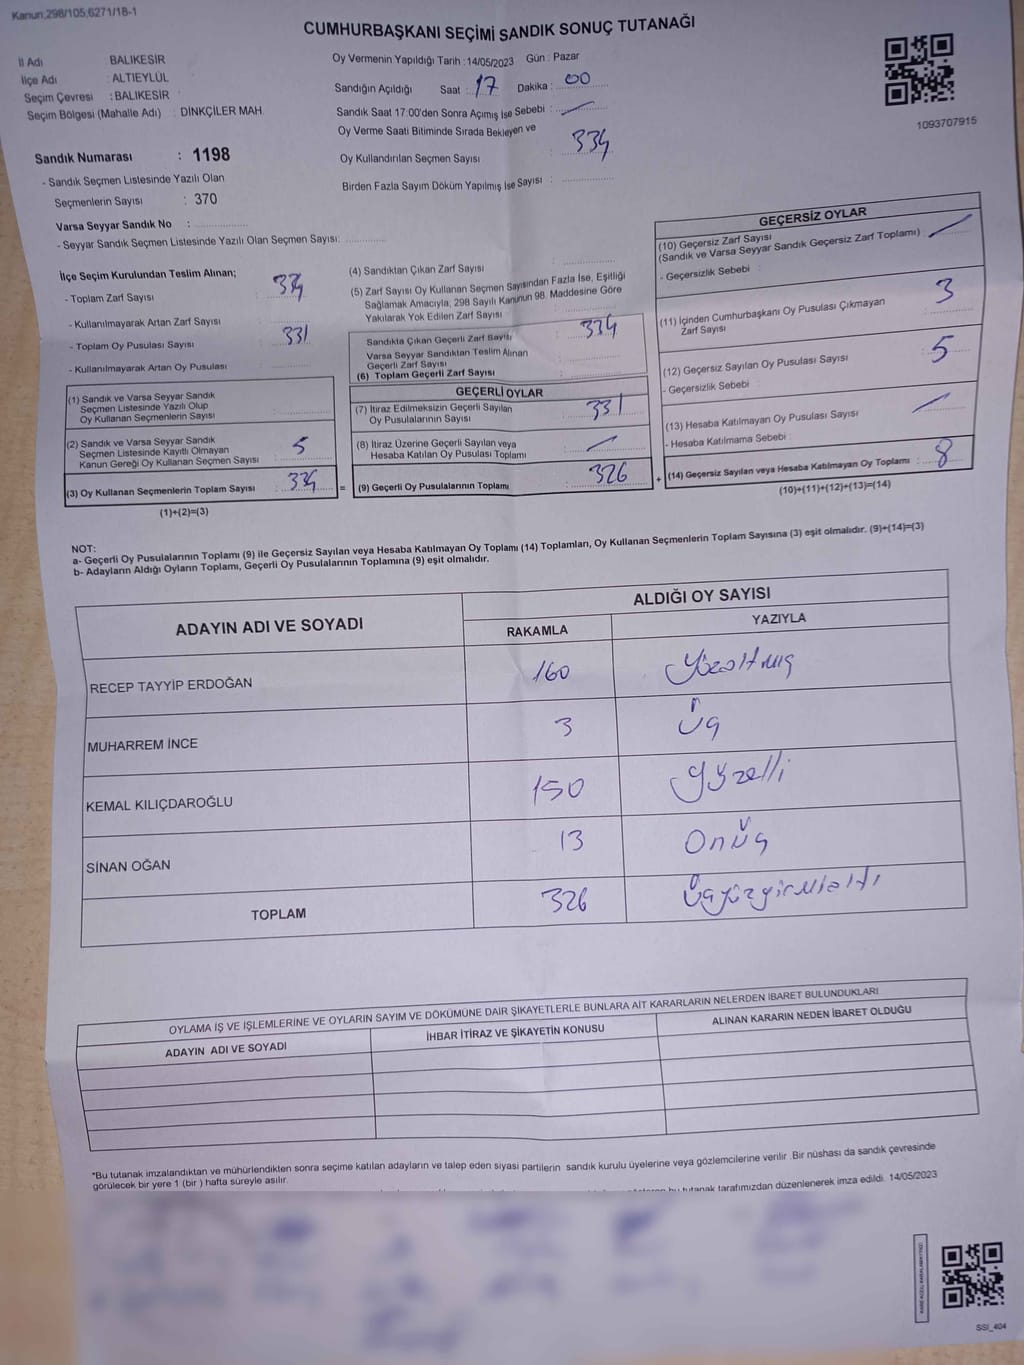 Kanun;298/105;6271/18-1
CUMHURBAŞKANI SEÇİMİ SANDIK SONUÇ TUTANAĞI
İl Adı : BALIKESİR
İlçe Adı : ALTIEYLÜL
Seçim Çevresi : BALIKESİR
Seçim Bölgesi (Mahalle Adı) : DİNKÇİLER MAH.
Sandık Numarası : 1198
- Sandık Seçmen Listesinde Yazılı Olan
Seçmenlerin Sayısı : 370
Varsa Seyyar Sandık No :
- Seyyar Sandık Seçmen Listesinde Yazılı Olan Seçmen Sayısı:
Oy Vermenin Yapıldığı Tarih :14/05/2023 Gün : Pazar
Sandığın Açıldığı Saat : 17 Dakika : 00
Sandık Saat 17:00'den Sonra Açımış İse Sebebi : —
Oy Verme Saati Bitiminde Sırada Bekleyen ve
Oy Kullandırılan Seçmen Sayısı : 334
Birden Fazla Sayım Döküm Yapılmış İse Sayısı :
1093707915
İlçe Seçim Kurulundan Teslim Alınan;
- Toplam Zarf Sayısı :
- Kullanılmayarak Artan Zarf Sayısı :
- Toplam Oy Pusulası Sayısı : 331
- Kullanılmayarak Artan Oy Pusulası :
(1) Sandık ve Varsa Seyyar Sandık
Seçmen Listesinde Yazılı Olup
Oy Kullanan Seçmenlerin Sayısı :
(2) Sandık ve Varsa Seyyar Sandık
Seçmen Listesinde Kayıtlı Olmayan
Kanun Gereği Oy Kullanan Seçmen Sayısı : 5
(3) Oy Kullanan Seçmenlerin Toplam Sayısı : 334 =
(1)+(2)=(3)
(4) Sandıktan Çıkan Zarf Sayısı :
(5) Zarf Sayısı Oy Kullanan Seçmen Sayısından Fazla İse, Eşitliği
Sağlamak Amacıyla, 298 Sayılı Kanunun 98. Maddesine Göre
Yakılarak Yok Edilen Zarf Sayısı :
Sandıkta Çıkan Geçerli Zarf Sayısı : 334
Varsa Seyyar Sandıktan Teslim Alınan
Geçerli Zarf Sayısı :
(6) Toplam Geçerli Zarf Sayısı :
GEÇERLİ OYLAR
(7) İtiraz Edilmeksizin Geçerli Sayılan
Oy Pusulalarının Sayısı : 331
(8) İtiraz Üzerine Geçerli Sayılan veya
Hesaba Katılan Oy Pusulası Toplamı : —
(9) Geçerli Oy Pusulalarının Toplamı : 326 +
GEÇERSİZ OYLAR
(10) Geçersiz Zarf Sayısı
(Sandık ve Varsa Seyyar Sandık Geçersiz Zarf Toplamı) : —
- Geçersizlik Sebebi :
(11) İçinden Cumhurbaşkanı Oy Pusulası Çıkmayan
Zarf Sayısı : 3
(12) Geçersiz Sayılan Oy Pusulası Sayısı : 5
- Geçersizlik Sebebi :
(13) Hesaba Katılmayan Oy Pusulası Sayısı : —
- Hesaba Katılmama Sebebi :
(14) Geçersiz Sayılan veya Hesaba Katılmayan Oy Toplamı : 8
(10)+(11)+(12)+(13)=(14)
NOT:
a- Geçerli Oy Pusulalarının Toplamı (9) ile Geçersiz Sayılan veya Hesaba Katılmayan Oy Toplamı (14) Toplamları, Oy Kullanan Seçmenlerin Toplam Sayısına (3) eşit olmalıdır. (9)+(14)=(3)
b- Adayların Aldığı Oyların Toplamı, Geçerli Oy Pusulalarının Toplamına (9) eşit olmalıdır.
ADAYIN ADI VE SOYADI
ALDIĞI OY SAYISI
RAKAMLA YAZIYLA
RECEP TAYYİP ERDOĞAN 160 Yüzaltmış
MUHARREM İNCE 3 Üç
KEMAL KILIÇDAROĞLU 150 yüzelli
SİNAN OĞAN 13 Onüç
TOPLAM 326 Üçyüzyirmialtı
OYLAMA İŞ VE İŞLEMLERİNE VE OYLARIN SAYIM VE DÖKÜMÜNE DAİR ŞİKAYETLERLE BUNLARA AİT KARARLARIN NELERDEN İBARET BULUNDUKLARI
ADAYIN ADI VE SOYADI İHBAR İTİRAZ VE ŞİKAYETİN KONUSU ALINAN KARARIN NEDEN İBARET OLDUĞU
*Bu tutanak imzalandıktan ve mühürlendikten sonra seçime katılan adayların ve talep eden siyasi partilerin sandık kurulu üyelerine veya gözlemcilerine verilir. Bir nüshası da sandık çevresinde
görülecek bir yere 1 (bir ) hafta süreyle asılır.
bu tutanak tarafımızdan düzenlenerek imza edildi. 14/05/2023
SSI_404